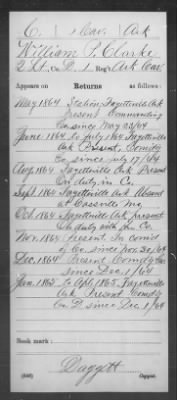 C. | 1 Cav. | Ark
William P. Clarke
2 Lt., Co. D, 1 Reg't Ark Cav.
Appears on Returns as follows:
May 1864 Station Fayettville Ark
Present Commanding
Co since May 23/64
June 1864 to July 1864 Fayettville
Ark Present, Comdg
Co. since July 17/64
Aug 1864 Fayettville Ark Present
On duty in Co.
Sept 1864 Fayettville Ark Absent
at Cassville Mo
Oct 1864 Fayettville Ark present
On duty with Co.
Nov. 1864 Present. In comd
of Co. since Nov. 30/64
Dec. 1864 Present Comdg Co
since Dec. 1/64
Jan. 1865 to Apl. 1865 Fayetteville
Ark Present Comdg
Co D since Dec 1/64
Book mark:
Daggett
(546) Copyist.